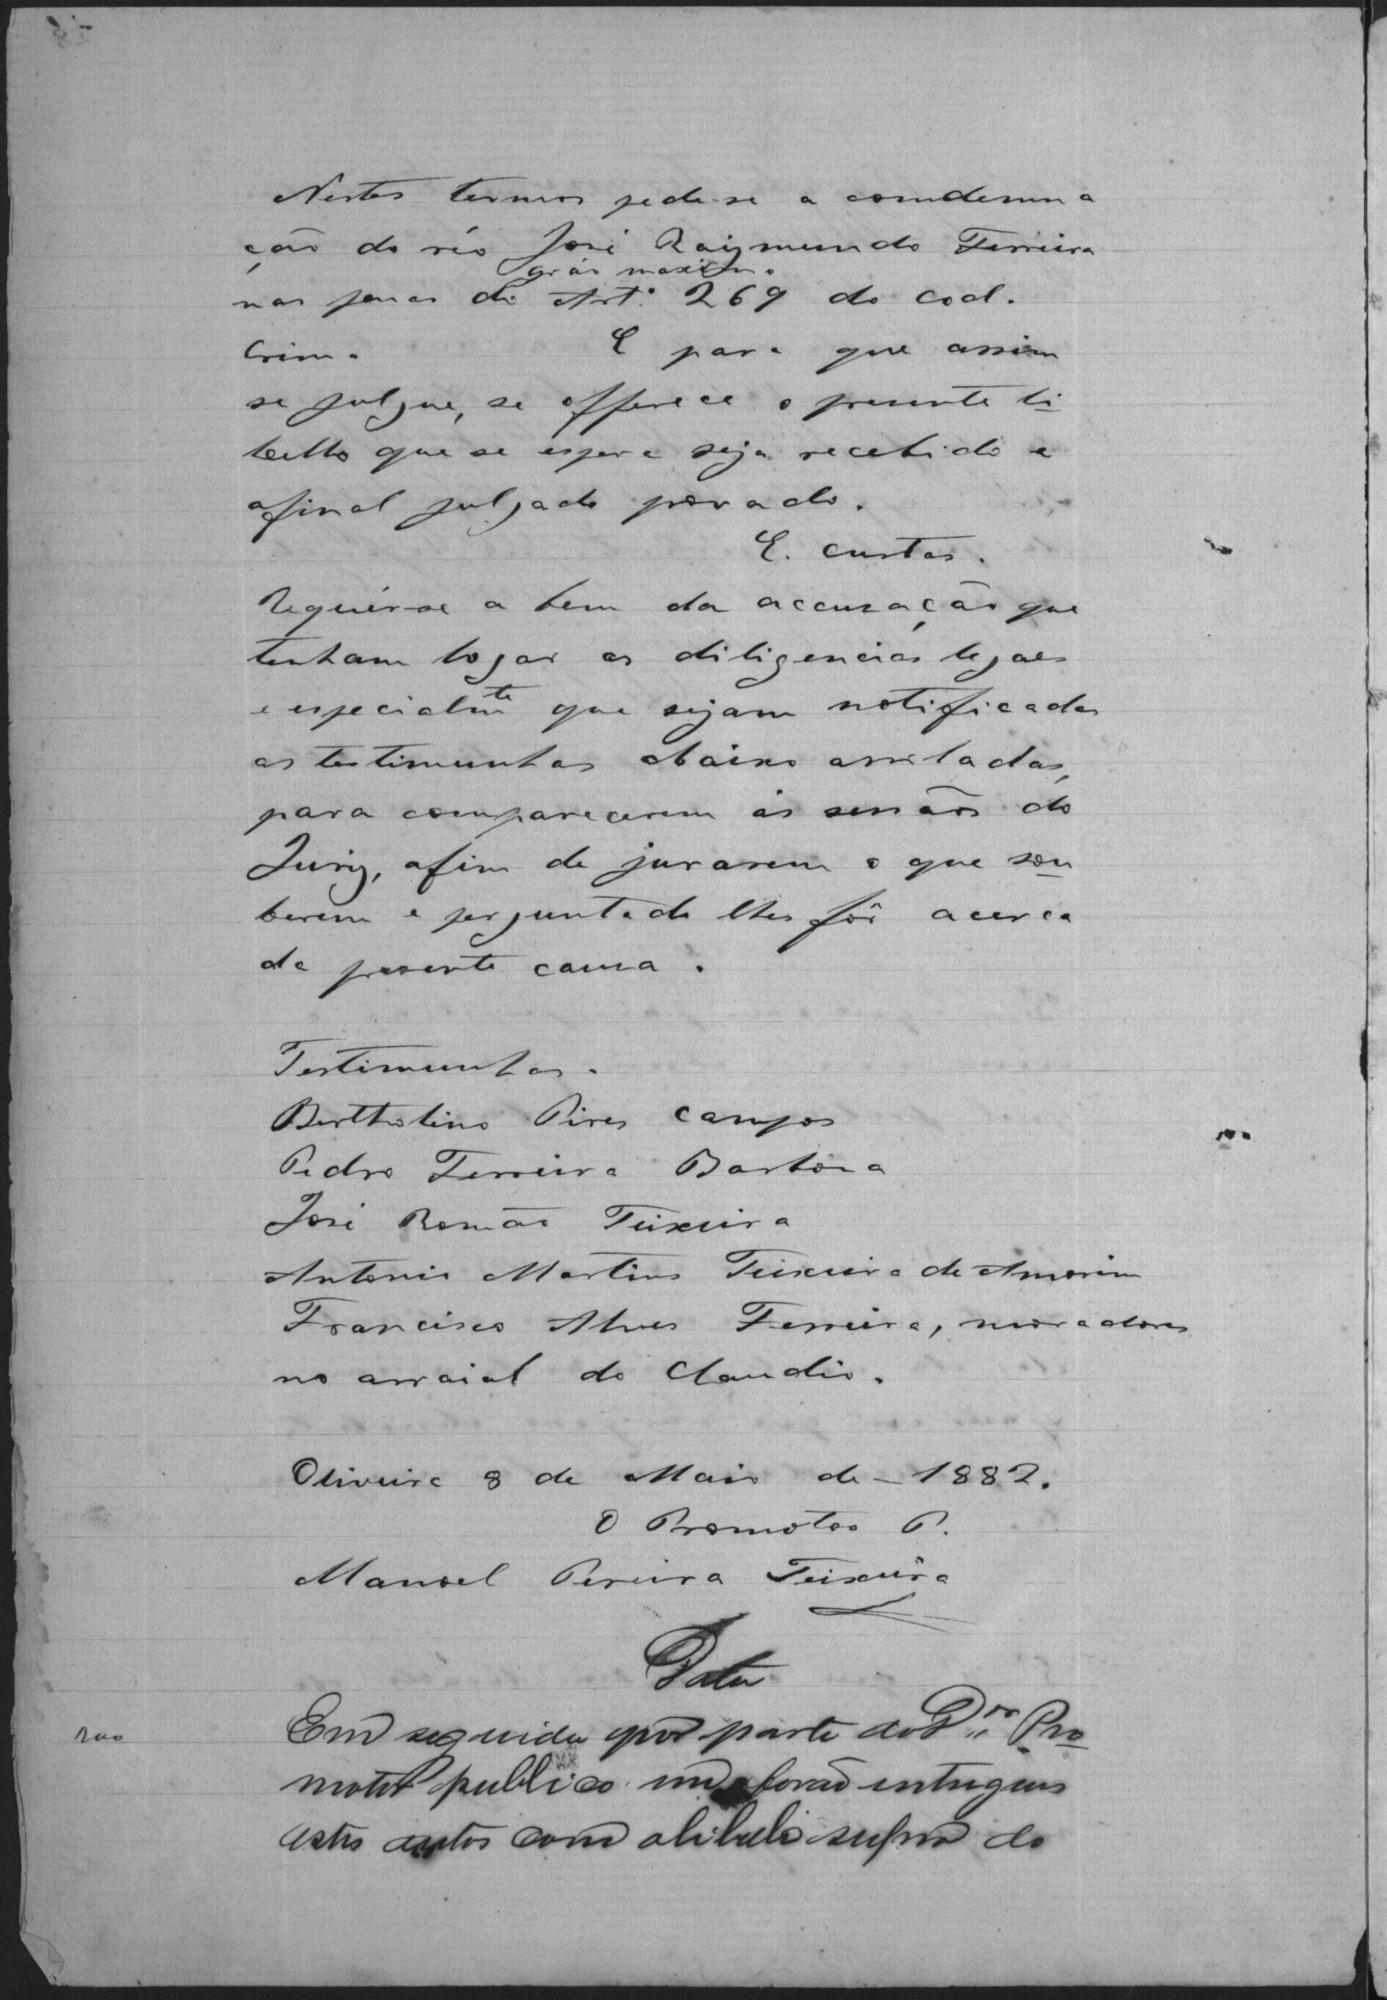 Nestes termos pede-se a comdemna
ção do réo José Raymundo Ferreira
gráo maximo
nas penas do Art.º 269 do cod.
Crim. E para que assim
se julgue, se offerece o presente li
bello que se espera seja recebido e
afinal julgado provado.
E. custas.
Requér-se a bem da accusação que
tenham logar as diligencias legaes
e especialmte que sejam notificadas
as testimunhas abaixo arroladas,
para comparecerem ás sessões do
Jury, afim de jurarem o que sou
berem e perguntado lhes fôr acerca
da presente causa.
Testimunhas.
Bertholino Pires Campos
Pedro Ferreira Barbosa
José Romão Teixeira
Antonio Martins Teixeira de Amorim
Francisco Alves Ferreira, moradores
no arraial do Claudio.
Oliveira 8 de Maio de 1882.
O Promotor P.
Manoel Pereira Teixeira
Data
Em seguida por parte do Dr. Pro
motor publico me forão entregues
estes autos com o libello supra do